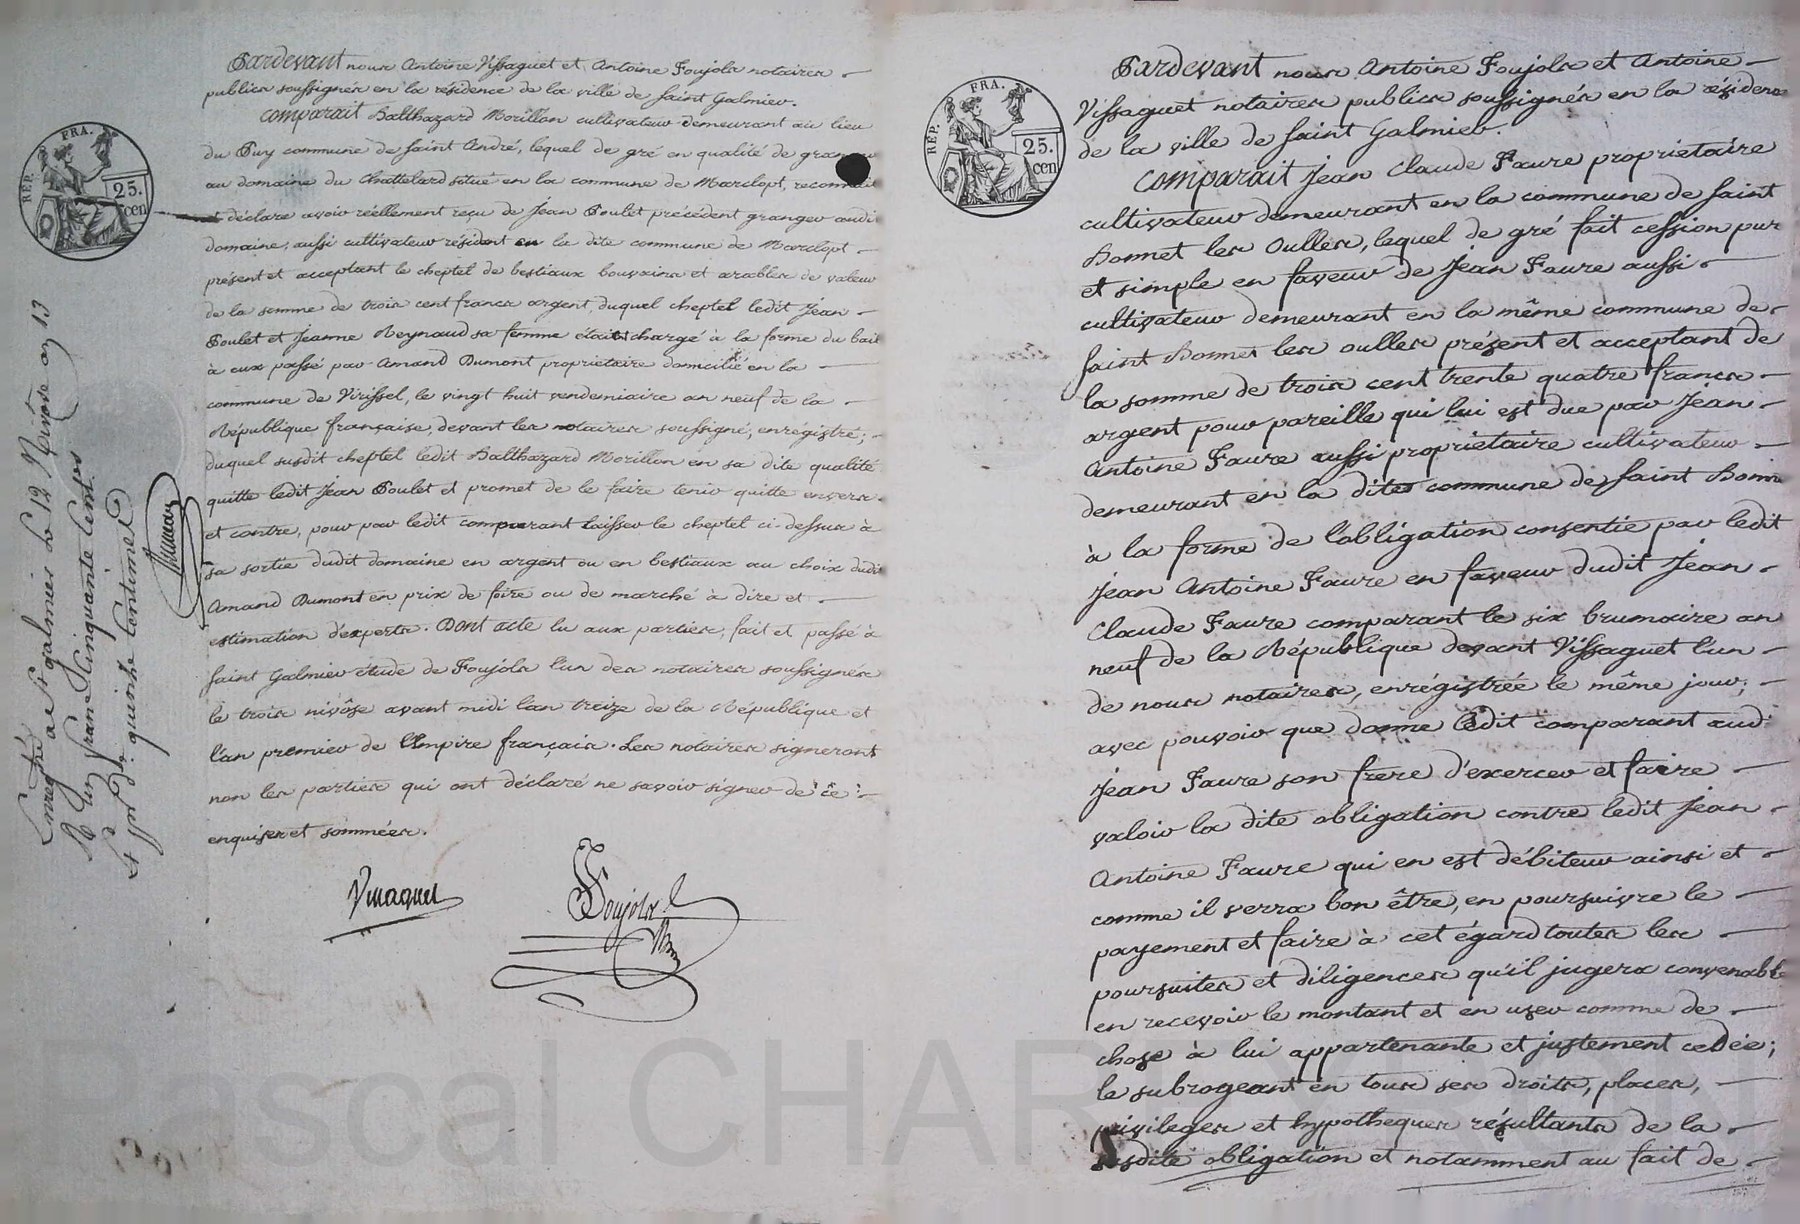 Pardevant nous Antoine Vissaguet et Antoine Foujols notaires
publics soussignés en la résidence de la ville de Saint Galmier.
Comparait Balthazard Morillon cultivateur demeurant au lieu
du Puy commune de Saint André, lequel de gré en qualité de
au domaine du Chattelard situé en la commune de Marclopt, reconnait
et déclare avoir réellement reçu de Jean Poulet précédent granger audit
domaine, aussi cultivateur résident en la dite commune de Marclopt
présent et acceptant le cheptel de bestiaux bouvains et arables de valeur
de la somme de trois cent francs argent, duquel cheptel ledit Jean
Poulet et Jeanne Reynaud sa femme étaient chargé à la forme du bail
à eux passé par Amand Dumont propriétaire domicilié en la
commune de Virissel, le vingt huit vendemiaire an neuf de la
République française, devant les notaires soussigné, enrégistré;
duquel susdit cheptel ledit Balthazard Morillon en sa dite qualité
quitte ledit Jean Poulet et promet de le faire tenir quitte envers
et contre, pour par ledit comparant laisser le cheptel ci-dessus à
sa sortie dudit domaine en argent ou en bestiaux au choix dudit
Amand Dumont en prix de foire ou de marché à dire et
estimation d'experts. Dont acte lu aux parties, fait et passé à
Saint Galmier étude de Foujols l'un des notaires soussignés
le trois nivôse avant midi l'an treize de la République et
l'an premier de l'Empire français. Les notaires signeront
non les parties qui ont déclaré ne savoir signer de ce
enquises et sommées.
Vissaguet
Foujols
Enregistré a St galmier le 12 Nivose an 13
R un franc Cinquante Centes
Et pour de quinze Centimes
REP. FRA.
25.
cen
Pardevant nous Antoine Foujols et Antoine
Vissaguet notaires publics soussignés en la résidence
de la ville de Saint Galmier.
Comparait Jean Claude Faure propriétaire
cultivateur demeurant en la commune de Saint
Bonnet les Oulles, lequel de gré fait cession pure
et simple en faveur de Jean Faure aussi
cultivateur demeurant en la même commune de
Saint Bonnet les oulles présent et acceptant de
la somme de trois cent trente quatre francs
argent pour pareille qui lui est due par Jean
Antoine Faure aussi propriétaire cultivateur
demeurant en la dite commune de Saint Bonnet
à la forme de l'obligation consentie par ledit
Jean Antoine Faure en faveur dudit Jean
Claude Faure comparant le six brumaire an
neuf de la République devant Vissaguet l'un
de nous notaires, enrégistrée le même jour;
avec pouvoir que donne ledit comparant aud:
Jean Faure son frere d'exercer et faire
valoir la dite obligation contre ledit Jean
Antoine Faure qui en est débiteur ainsi et
comme il verra bon être, en poursuivre le
payement et faire à cet égard toutes les
poursuites et diligences qu'il jugera convenable
en recevoir le montant et en user comme de
chose à lui appartenante et justement cedée;
le subrogeant en tous ses droits, places,
privileges et hypotheques résultants de la
susdite obligation et notamment au fait de
REP. FRA.
25.
cen
Pascal